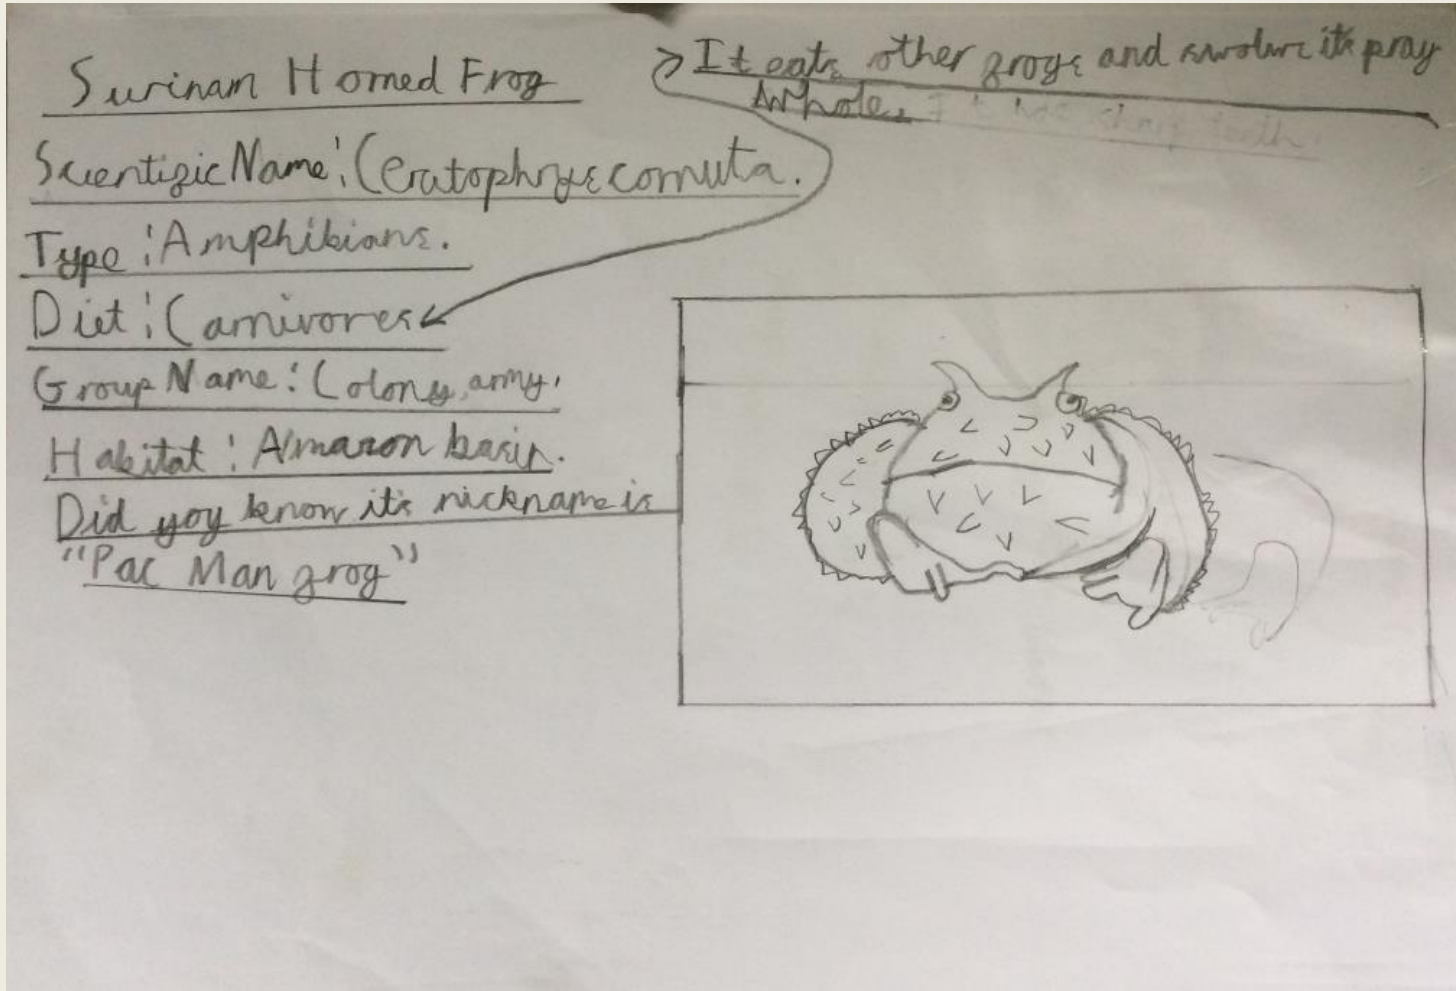 Surinam Horned Frog
Scientific Name: Ceratophrys cornuta.
Type: Amphibians.
Diet: Carnivores
Group Name: Colony, army.
Habitat: Amazon basin.
Did yoy know it's nickname is
"Pac Man frog"
It eats other frogs and swolwe its pray
Whole. It has sharp teeth.